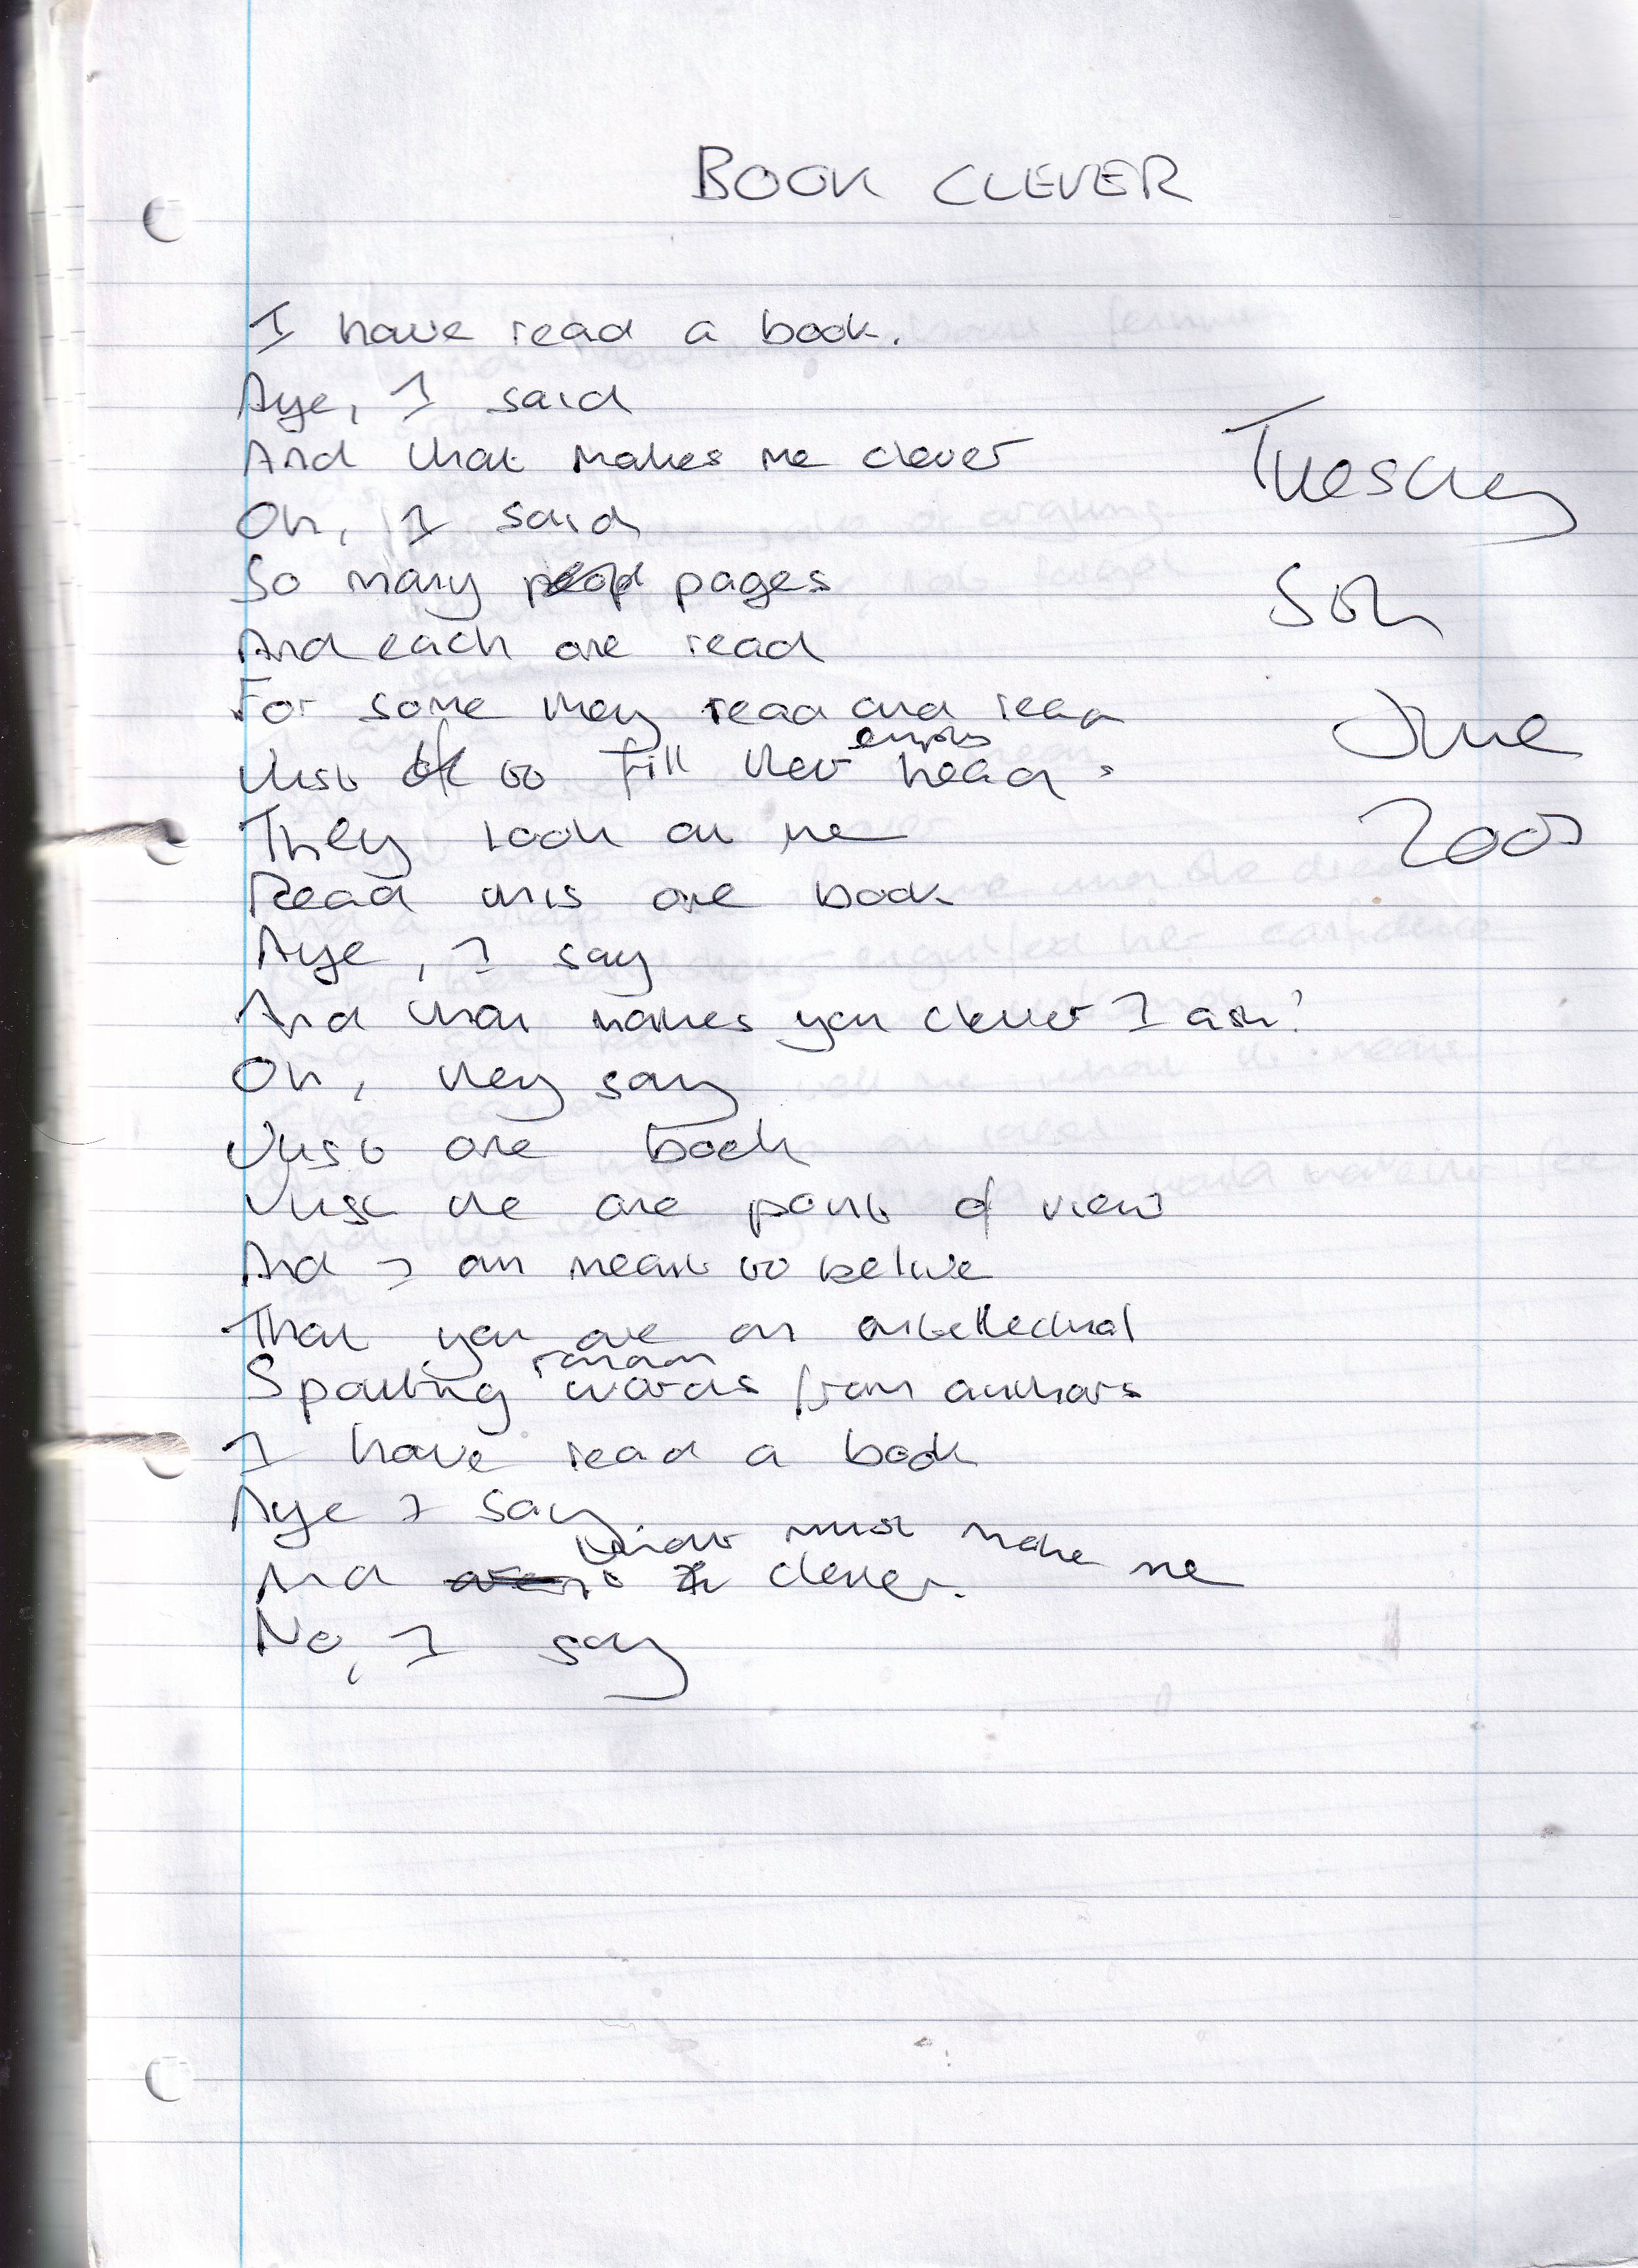 BOOK CLEVER
I have read a book.
Aye, I said
And that makes me clever
Oh, I said
So many pages
And each one read
For some they read and read
Just to fill their empty head.
They look on me
Read this one book
Aye, I say
And that makes you clever I ask?
Oh, they say
Just one book
Just the one point of view
And I am meant to belive
That you are an intellectual
Spouting random words from authors
I have read a book
Aye I say
And that must make me clever.
No, I say
Tuesday
5th
June